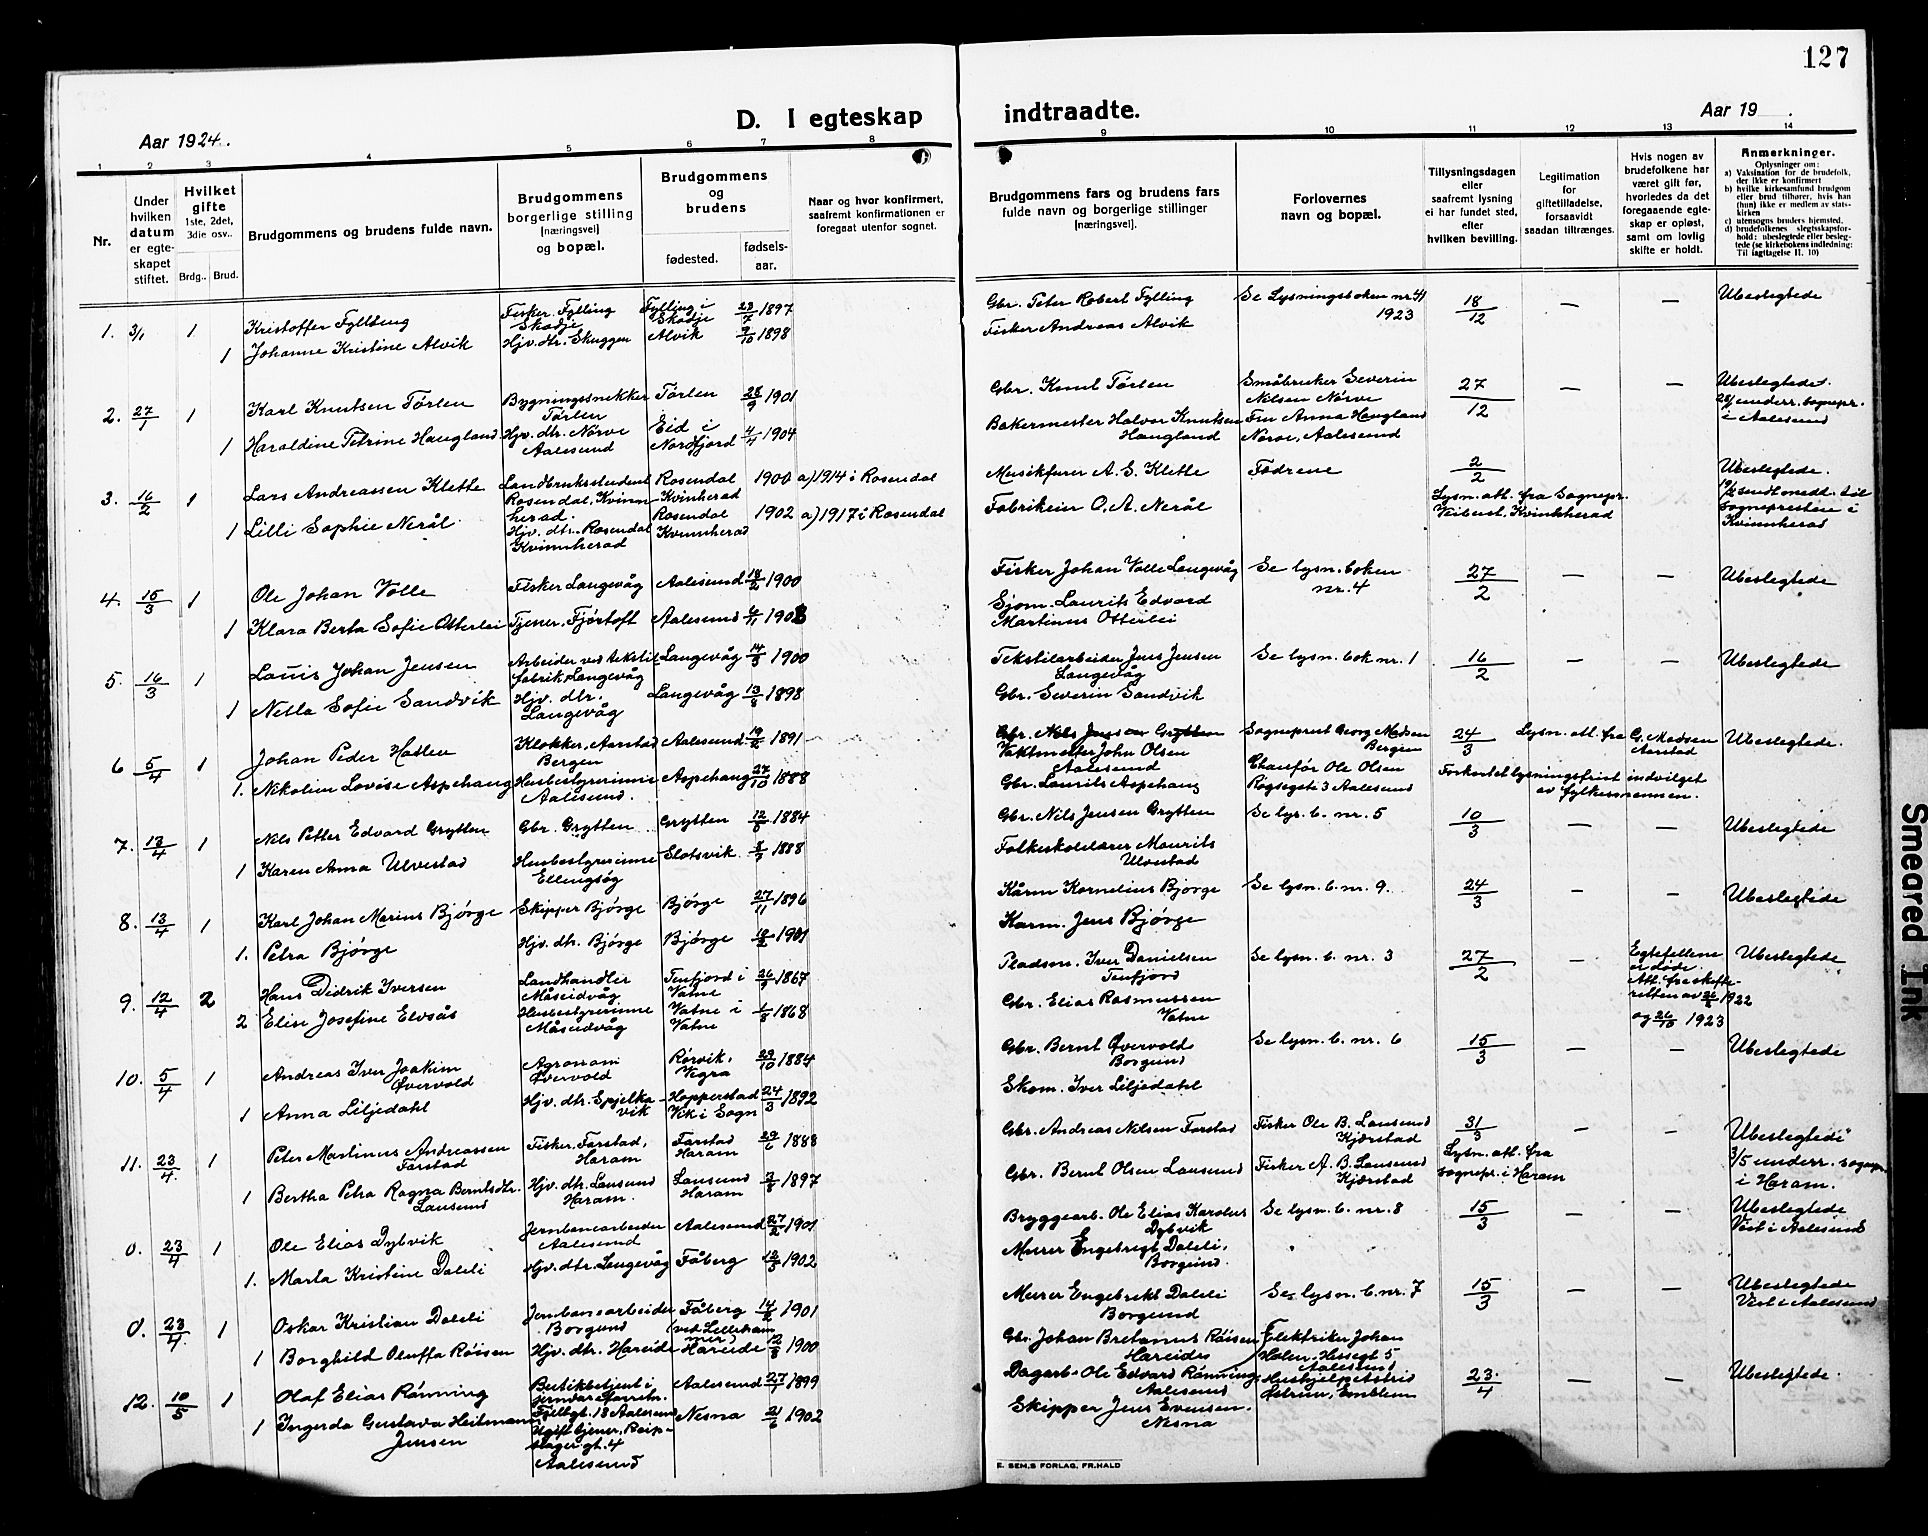 127
Aar 1924.
D. I egteskap
indtraadte.
Aar 19
1 2 3 4 5 6 7 8 9 10 11 12 13 14
Nr.
Under hvilken datum er egteskapet stiftet.
Hvilket gifte
1ste, 2det, 3die osv..
Brdg.. Brud.
Brudgommens og brudens fulde navn.
Brudgommens borgerlige stilling (næringsvei) og bopæl.
Brudgommens og brudens
fødested.
fødsels-aar.
Naar og hvor konfirmert, saafremt konfirmationen er foregaat utenfor sognet.
Brudgommens fars og brudens fars fulde navn og borgerlige stillinger (næringsvei).
Forlovernes navn og bopæl.
Tillysningsdagen eller saafremt lysning ei har fundet sted, efter hvilken bevilling.
Legitimation for giftetilladelse, forsaavidt saadan tiltrænges.
Hvis nogen av brudefolkene har været gift før, hvorledes da det foregaaende egteskap er opløst, samt om lovlig skifte er holdt.
Anmerkninger.
Oplysninger om:
a) Vaksination for de brudefolk, der ikke er konfirmert
b) hvilke kirkesamfund brudgom eller brud tilhører, hvis han (hun) ikke er medlem av statskirken
c) utensogns bruders hjemsted.
d) brudefolkenes slegtsskapsforhold: ubeslegtede eller beslegtede (se kirkebokens indledning: Til iagttagelse II. 10)
1. 3/1 1 Kristoffer Fylling Fisker Fylling Skodje Fylling i Skodje 23/7 1897 Gbr. Peter Robert Fylling Se Lysningsboken nr 41 1923 18/12 — — Ubeslegtede
1 Johanne Kristine Alvik Hjv. dtr. Skuggen Alvik 9/10 1898 Fisker Andreas Alvik
2. 27/1 1 Karl Knutsen Tørlen Bygningssnekker Tørlen Tørlen 28/9 1901 Gbr. Knut Tørlen Småbruker Severin Nilsen Nørve 27/12 — — Ubeslegtede. 28/1 underr. sognepr. i Aalesund
1 Haraldine Petrine Haugland Hjv. dtr. Nørve Aalesund Eid i Nordfjord 4/4 1904 Bakermester Halvor Knutsen Haugland Fru Anna Haugland Nørve, Aalesund
3. 16/2 1 Lars Andreassen Klette Landbruksstudent Rosendal, Kvinnherad. Rosendal Kvinherad 1900 a) 1914 i Rosendal Musikfurer A. S. Klette Fødrene 2/2 Lysn. att. fra Sognepr. Kvinnherad Ubeslegtede. 19/2 sendt medt. til sognepresten i Kvinnherad
1 Lilli Sophie Nerål Hjv. dtr. Rosendal Kvinnherad Rosendal Kvinnherad 1902 a) 1917 i Rosendal Fabrikeier O. A. Nerål
4. 15/3 1 Ole Johan Volle Fisker Langevåg Aalesund 18/2 1900 Fisker Johan Volle Langevåg Se lysn. boken nr. 4 27/2 — — Ubeslegtede
1 Klara Berta Sofie Otterlei Tjener, Fjørtoft Aalesund 4/11 1903 Sjøm. Laurits Edvard Martinus Otterlei
5. 16/3 1 Louis Johan Jensen Arbeider ved tekstilfabrik Langevåg Langevåg 14/3 1900 Tekstilarbeider Jens Jensen Langevåg Se lysn. bok nr. 1 16/2 — — Ubeslegtede
1 Netla Sofie Sandvik Hjv. dtr. Langevåg Langevåg 13/8 1898 Gbr. Severin Sandvik
6 5/4 1 Johan Peder Hatlen Klokker, Aarstad Bergen Aalesund 19/2 1891 Vaktmester John Olsen Aalesund Sogneprest Georg Madsen Bergen 24/3 Lysn. att. fra G. Madsen Aarstad Ubeslegtede.
1. Nikoline Lovise Aspehaug Husbestyrerinne Aalesund. Aspehaug 27/10 1888 Gbr. Laurits Aspehaug Chaufør Ole Olsen Røgsegt 3 Aalesund Forkortet lysningsfrist indvilget av fylkesmannen.
7. 13/4 1 Nils Petter Edvard Grytten Gbr. Grytten Grytten 12/5 1884 Gbr. Nils Jensen Grytten Se lys. b. nr. 5 10/3 — — Ubeslegtede
1 Karen Anna Ulvestad Husbestyrerinne Ellingsøy Slotsvik 1888 Folkeskolelærer Maurits Ulvestad
8. 13/4 1 Karl Johan Marius Bjørge Skipper Bjørge Bjørge 27/11 1896 Kårm Kornelius Bjørge Se lysn. b. nr. 9. 24/3 — — Ubeslegtede
1. Petra Bjørge Hjv. dtr. Bjørge Bjørge 19/2 1901 Karm. Jens Bjørge
9. 12/4 2 Hans Didrik Iversen Landhandler Måseidvåg Tenfjord i Vatne 26/5 1867 Pladsm. Iver Danielsen Tenfjord Se lysn. b. nr. 3 27/2 — Egtefellene er døde. Att. fra skifteretten av 26/5 1922 og 26/10 1923 Ubeslegtede
2 Elise Josefine Elvsås Husbestyrerinne Måseidvåg Vatne i Vatne 1/8 1868 Gbr. Elias Rasmussen Vatne
10. 5/4 1 Andreas Iver Joakim Øvervold Agronom Øvervold Rørvik, Vigra 23/10 1884 Gbr. Bernt Øvervold Borgund Se lysn. b. nr. 6 15/3 — — Ubeslegtede
1 Anna Liljedahl Hjv. dtr. Spjelkavik Hopperstad Vik i Sogn 24/3 1892 Skom. Iver Liljedahl
11. 23/4. 1 Peter Martinus Andreassen Farstad Fisker. Farstad, Haram Farstad Haram 29/6 1888 Gbr. Andreas Nilsen Farstad Fisker Ole B. Lausund Kjærstad 31/3 Lysn. att. fra sognepr. i Haram — — Ubeslegtede 3/5 underr. sognepr. i Haram.
1 Bertha Petra Ragna Berntsdtr. Lausund Hjv. dtr. Lausund Haram. Lausund Haram 2/8 1897 Gbr. Bernt Olsen Lausund Fisker A. B. Lausund Kjærstad
0. 23/4 1 Ole Elias Dybvik Jernbanearbeider Aalesund Aalesund 27/2 1901 Bryggearb. Ole Elias Karolus Dybvik Se lysn. b. nr. 8 15/3 — — Ubeslegtede Viet i Aalesund
1. Marta Kristine Daleli Hjv. dtr. Langevåg Fåberg 12/3 1902 Murer Engebregt Daleli. Borgund.
0. 23/4. 1 Oskar Kristian Daleli Jernbanearbeider Borgund Fåberg (ved Lillehammer) 14/2 1901 Murer Engebrekt Daleli Borgund Se lysn. b. nr. 7 15/3 — — Ubeslegtede Viet i Aalesund
1 Borghild Oluffa Røisen Hjv. dtr. Hareide Hareide 12/3 1900 Gbr. Johan Bretanus Røisen Hareide Elektriker Johan Holen. Hessegt 5 Aalesund
12. 10/5 1 Olaf Elias Rønning Butikbetjent i Fjellgt. 18 Aalesund Aalesund 27/1 1899 Dagarb. Ole Edvard Rønning Aalesund Emblem 23/4 — — Ubeslegtede.
1 Ingerda Gustava Heitmann Jensen Ugift tjener, Reipslagergt. 4 Aalesund Nesna 21/6 1902 Skipper Jens Evensen. Nesna
E. SEM,S FORLAG, FR.HALD
Smeared Ink